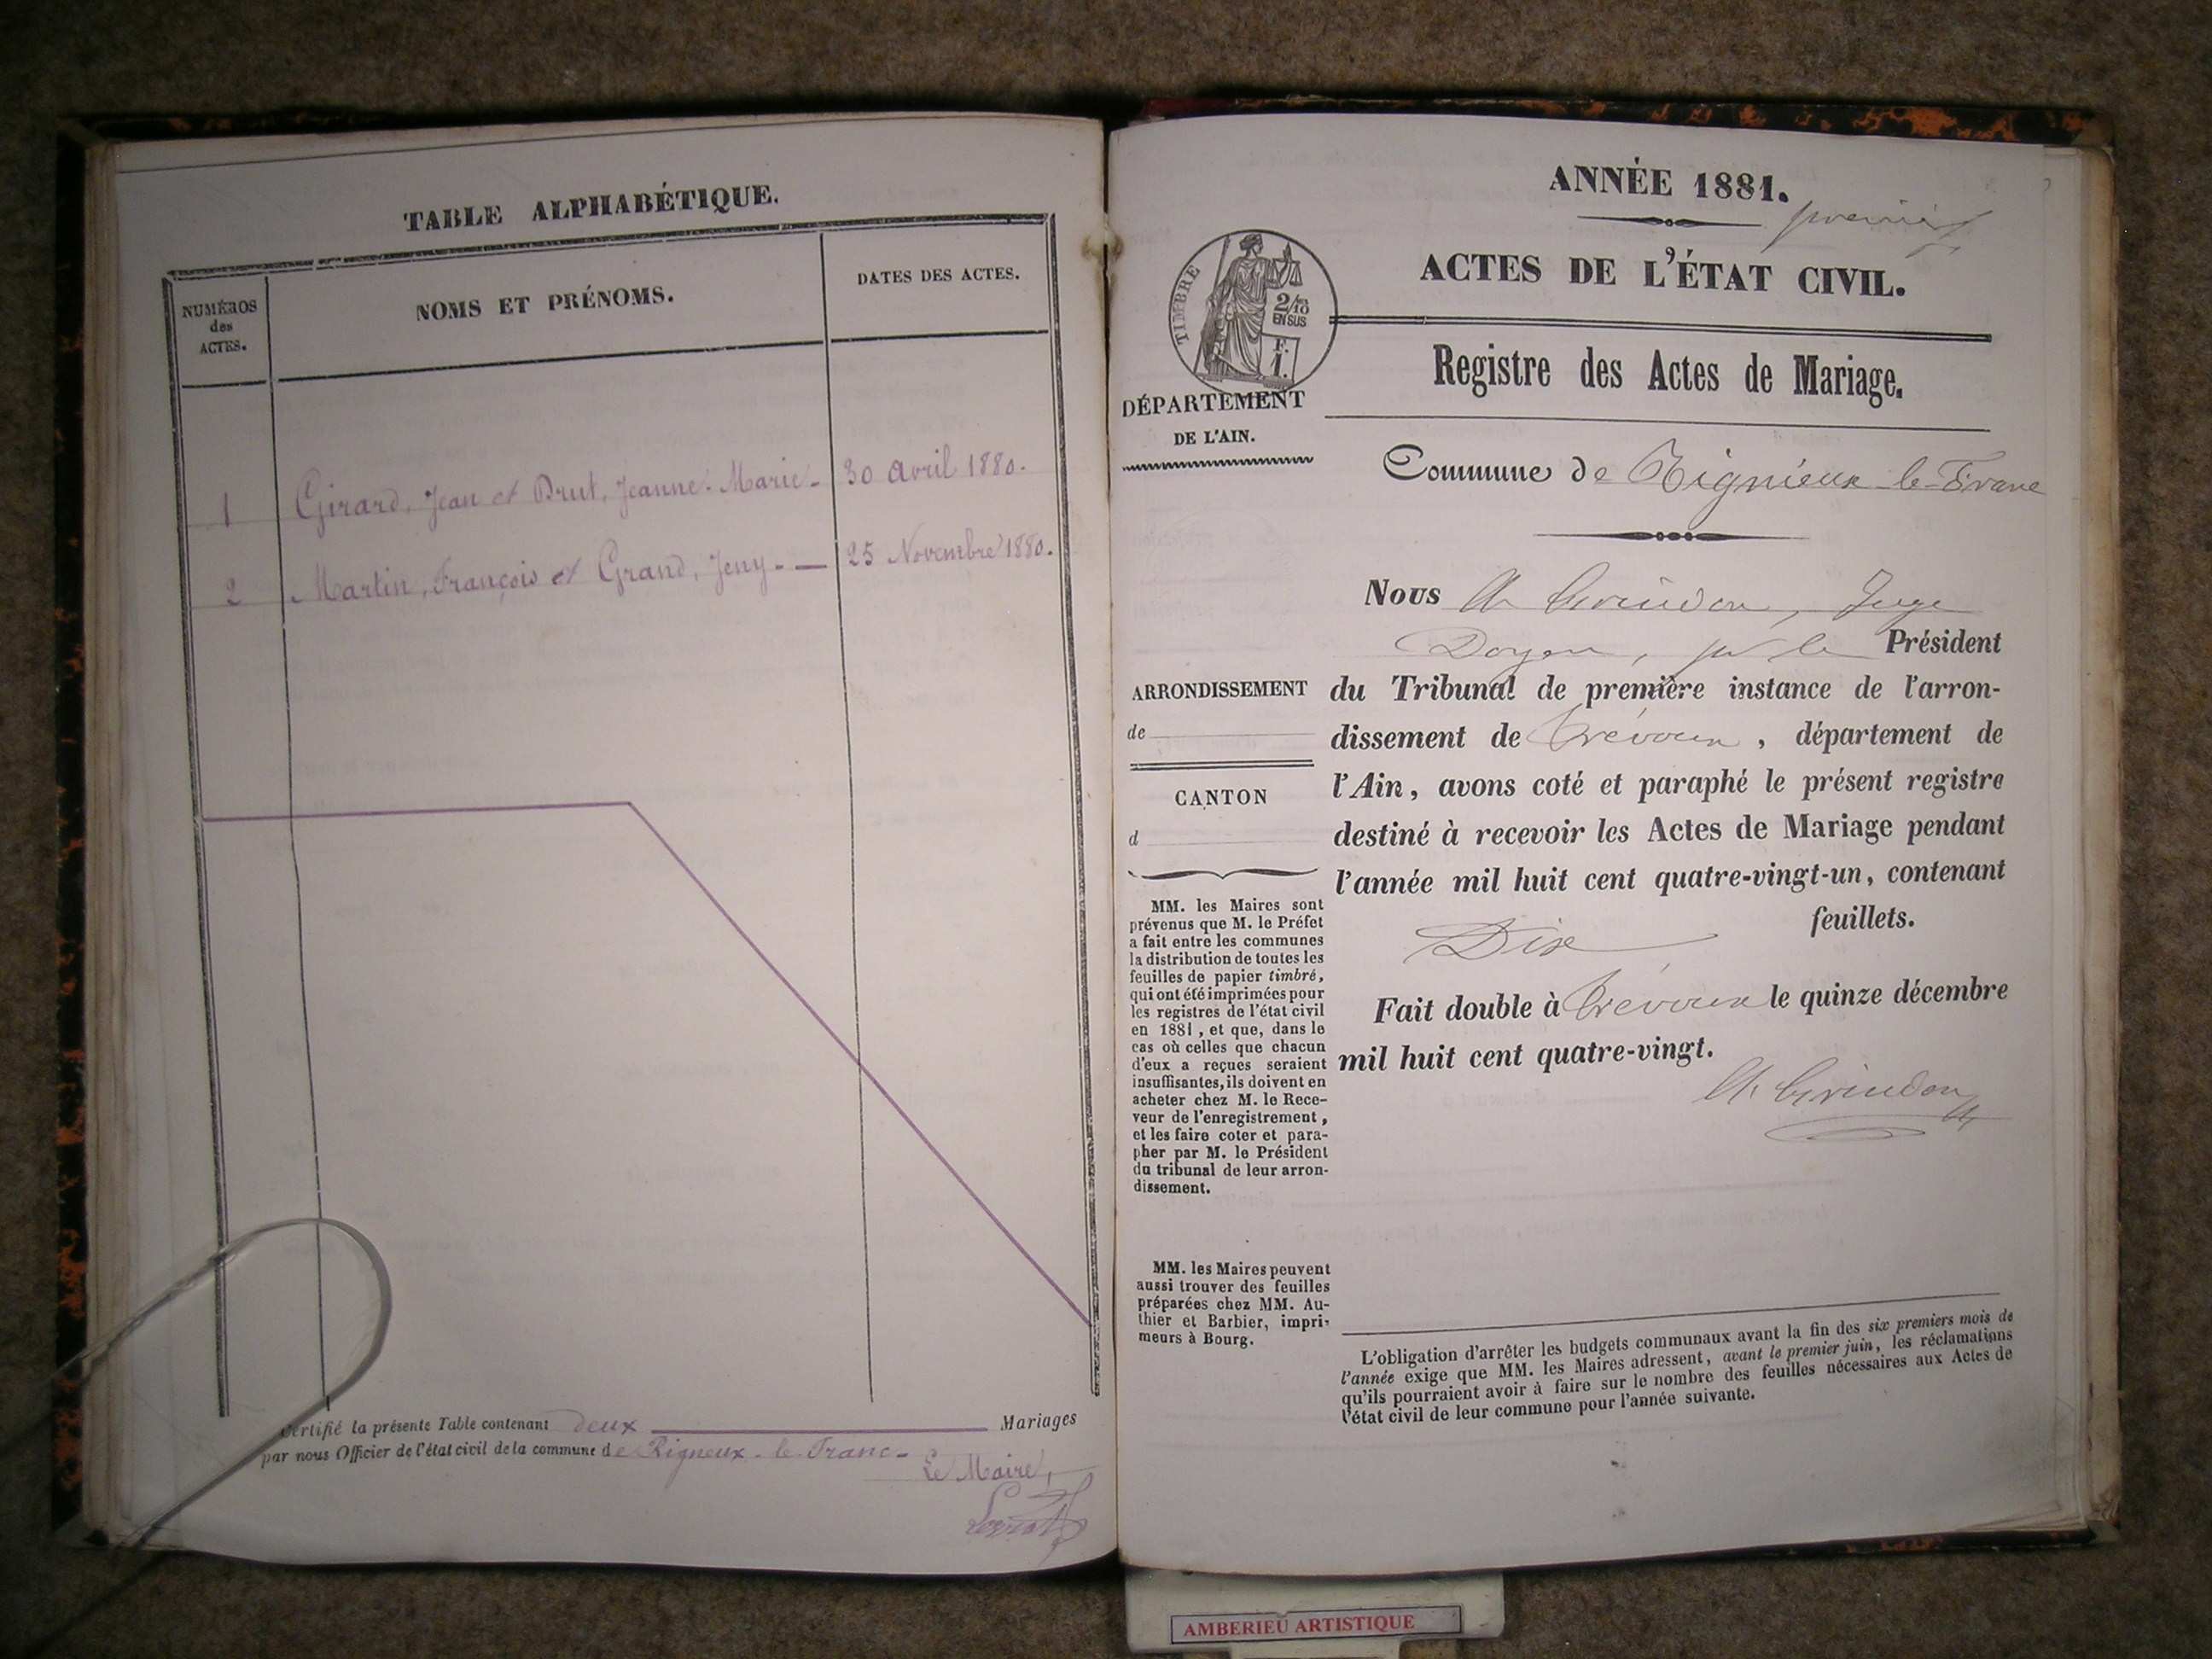 TABLE ALPHABÉTIQUE.
NUMÉROS
des
ACTES.
NOMS ET PRÉNOMS.
DATES DES ACTES.
1 Girard, Jean et Brut, Jeanne-Marie - 30 avril 1880.
2 Martin, François et Grand, Jeny - — 25 Novembre 1880.
Certifié la présente Table contenant deux Mariages
par nous Officier de l'état civil de la commune de Rigneux-le-Franc-
Le Maire,
ANNÉE 1881.
premier
ACTES DE L'ÉTAT CIVIL.
TIMBRE
2/10
EN SUS
F.
1.
Registre des Actes de Mariage.
DÉPARTEMENT
DE L'AIN.
Commune de Rignieux le-Franc
Nous Juge
Doyen, Président
du Tribunal de première instance de l'arron-
dissement de Trévoux, département de
l'Ain, avons coté et paraphé le présent registre
destiné à recevoir les Actes de Mariage pendant
l'année mil huit cent quatre-vingt-un, contenant
Dix feuillets.
Fait double à Trévoux le quinze décembre
mil huit cent quatre-vingt.
ARRONDISSEMENT
de
CANTON
d
MM. les Maires sont
prévenus que M. le Préfet
a fait entre les communes
la distribution de toutes les
feuilles de papier timbré,
qui ont été imprimées pour
les registres de l'état civil
en 1881, et que, dans le
cas où celles que chacun
d'eux a reçues seraient
insuffisantes, ils doivent en
acheter chez M. le Rece-
veur de l'enregistrement,
et les faire coter et para-
pher par M. le Président
du tribunal de leur arron-
dissement.
MM. les Maires peuvent
aussi trouver des feuilles
préparées chez MM. Au-
thier et Barbier, impri-
meurs à Bourg.
L'obligation d'arrêter les budgets communaux avant la fin des six premiers mois de
l'année exige que MM. les Maires adressent, avant le premier juin, les réclamations
qu'ils pourraient avoir à faire sur le nombre des feuilles nécessaires aux Actes de
l'état civil de leur commune pour l'année suivante.
AMBERIEU ARTISTIQUE